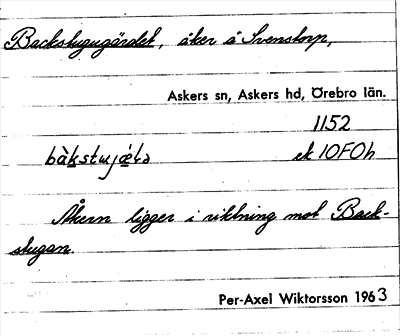 Backstugugärdet, åker å Svenstorp,
Askers sn, Askers hd, Örebro län.
1152
bàkstugjǽtə ek 10F0h
Åkern ligger i riktning mot Back-
stugan.
Per-Axel Wiktorsson 1963